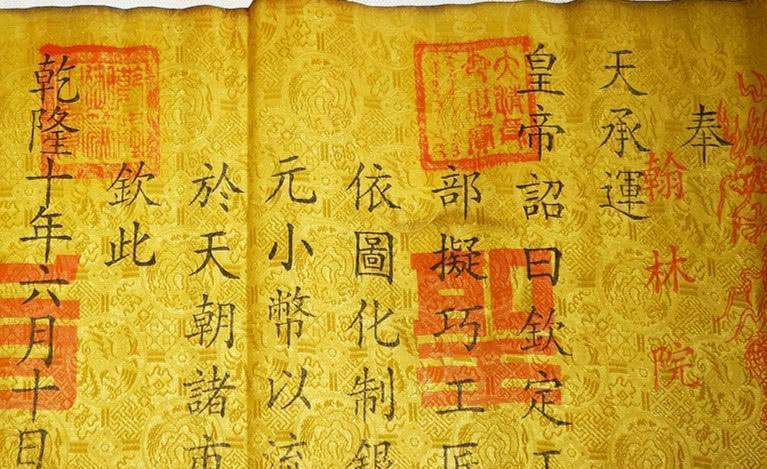 奉
翰林院
天承運
皇帝詔曰欽定工
部擬巧工匠
依圖化制銀
元小幣以流
於天朝諸市
欽此
乾隆十年六月十日